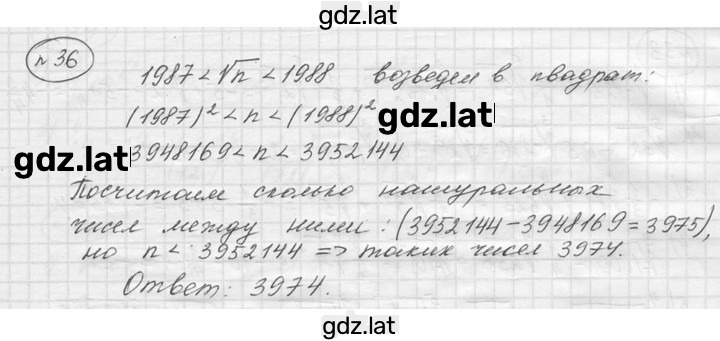 gdz.lat
n 36
1987 < √n < 1988 возведем в квадрат:
(1987)² < n < (1988)²
gdz.lat
gdz.lat
3948169 < n < 3952144
Посчитаем сколько натуральных
чисел между ними: (3952144 - 3948169 = 3975),
но n < 3952144 => таких чисел 3974.
Ответ: 3974.
gdz.lat